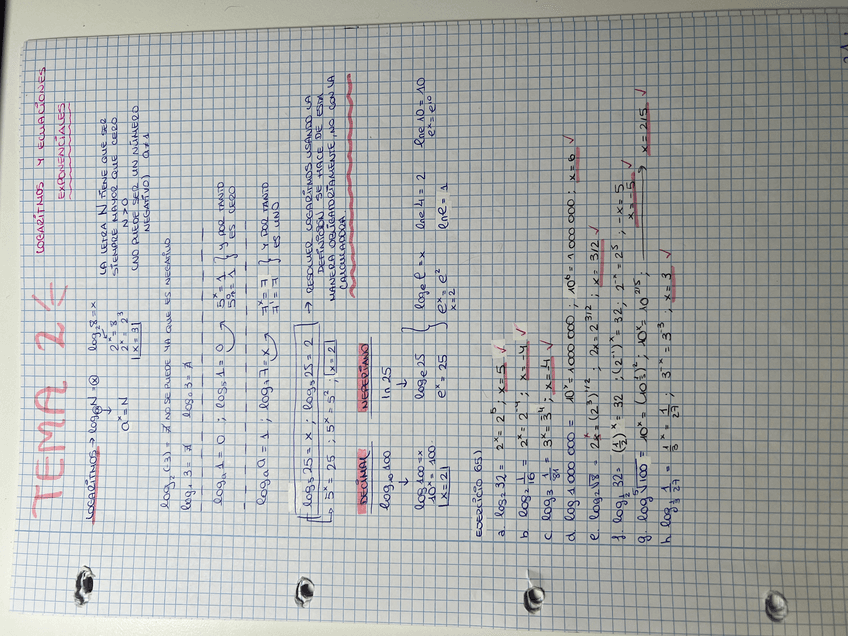 TEMA 2
LOGARITMOS Y ECUACIONES
EXPONENCIALES
LOGARITMOS → logₐN = x
aˣ = N
log₂8 = x
2ˣ = 8
2ˣ = 2³
x = 3
LA LETRA N TIENE QUE SER
SIEMPRE MAYOR QUE CERO
N > 0
(NO PUEDE SER UN NÚMERO
NEGATIVO) a ≠ 1
log₂(-3) = NO SE PUEDE YA QUE ES NEGATIVO
logₐ1 = 0 ; log₅1 = 0
5ˣ = 1
5⁰ = 1
} Y POR TANTO
ES CERO
logₐa = 1 ; log₇7 = x
7ˣ = 7
7¹ = 7
} Y POR TANTO
ES UNO
log₅25 = x ; log₅25 = 2
→ 5ˣ = 25 ; 5ˣ = 5² ; x = 2
→ RESOLVER LOGARITMOS USANDO LA
DEFINICIÓN SE HACE DE ESTA
MANERA OBLIGATORIAMENTE, NO CON LA
CALCULADORA
DECIMAL
log₁₀100
↓
log100 = x
10ˣ = 100
x = 2
NEPERIANO
ln 25
↓
logₑ25
eˣ = 25
logₑe² = x
eˣ = e²
x = 2
ln e = 1
eˣ = e¹⁰
EJERCICIO 65)
a. log₂32 = 2ˣ = 2⁵ ; x = 5 ✓
b. log₂ 1/16 = 2ˣ = 2⁻⁴ ; x = -4 ✓
c. log₃ 1/81 = 3ˣ = 3⁻⁴ ; x = -4 ✓
d. log 1000000 = 10ˣ = 1000000 ; 10⁶ = 1000000 ; x = 6 ✓
e. log₂√8 = 2ˣ = (2³)^1/2 ; 2x = 2^3/2 ; x = 3/2 ✓
f. log 1/2 32 = (1/2)ˣ = 32 ; (2⁻¹)ˣ = 32 ; 2⁻ˣ = 2⁵ ; -x = 5
x = -5 ✓
g. log ⁵√100 = 10ˣ = 10^2/5 ; x = 2/5 ✓
h. log 1/3 1/27 = 1/3 ˣ = 1/27 ; 3⁻ˣ = 3⁻³ ; x = 3 ✓